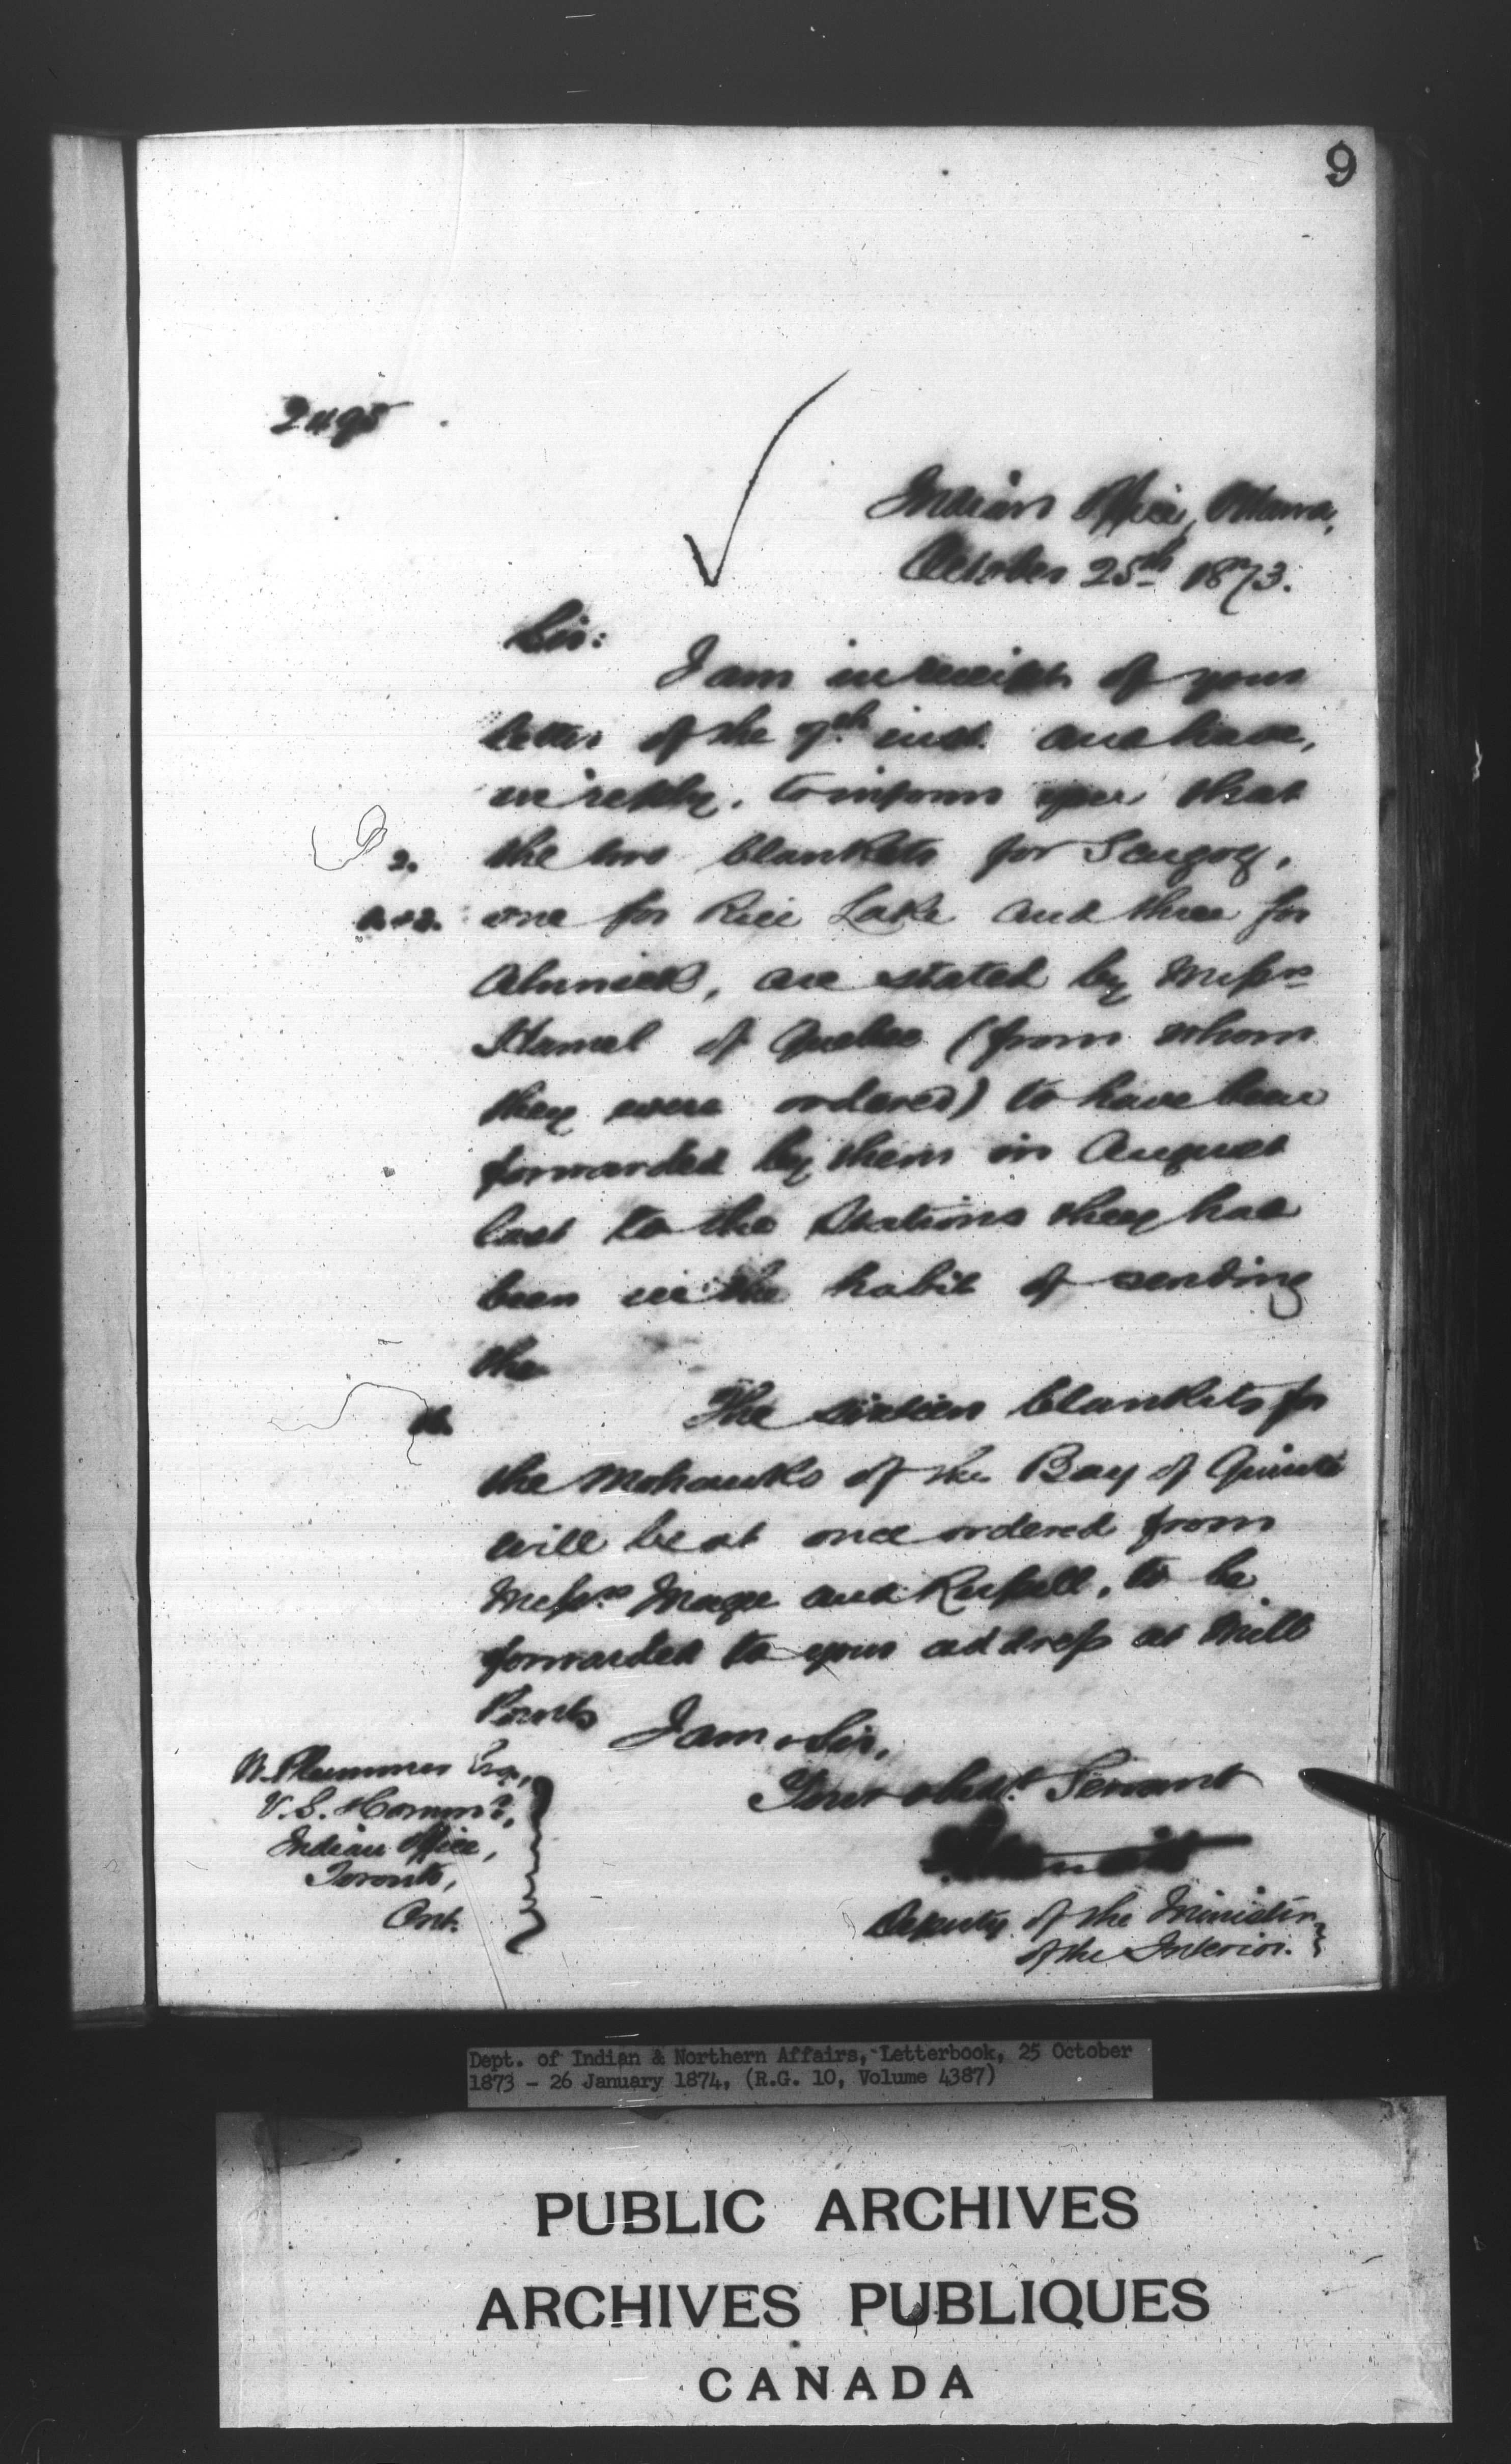 9
2495
Indian Office, Ottawa,
October 25th 1873.
Sir:
I am in receipt of your
letter of the 7th inst. and have,
in reply, to inform you that
2. the two blankets for Scugog,
one for Rice Lake and three for
Alnwick, are stated by Messrs
Hamel of Quebec (from whom
they were ordered) to have been
forwarded by them in August
last to the Stations they had
been in the habit of sending
the
16. The sixteen blankets for
the Mohawks of the Bay of Quinté
will be at once ordered from
Messrs Magee and Russell, to be
forwarded to your address at Mill
Point
I am, Sir,
Your obedt. Servant
Deputy of the Minister
of the Interior.
W. Plummer Esq,
V.S. Commr,
Indian Office,
Toronto,
Ont.
Dept. of Indian & Northern Affairs, Letterbook, 25 October
1873 - 26 January 1874, (R.G. 10, Volume 4387)
PUBLIC ARCHIVES
ARCHIVES PUBLIQUES
CANADA